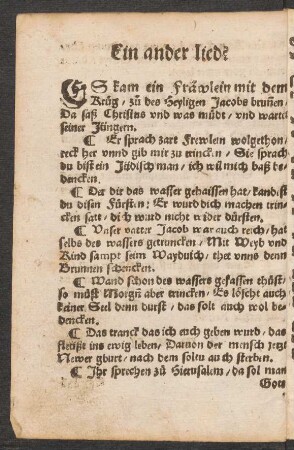 Ein ander lied?
ES kam ein Fräwlein mit dem
Krůg / zů des Heyligen Jacobs bruñen /
Da saß Christus vnd was můdt / vnd wartt
seiner Jüngern.
¶ Er sprach zart Frewlem wolgethon /
reck her vnnd gib mir zu trincken / Sie sprach
du bist ein Jüdisch man / ich wil mich baß be
dencken.
¶ Der dir das wasser gehaissen hat / kandist
du disen Fürsten : Er wurd dich machen trin-
cken satt / dich wurd nicht wider dürsten.
¶ Vnser vatter Jacob war auch reich / hat
selbs des wassers getruncken / Mit Weyb vnd
Kind sampt seim Waydvich / thet vnns denn
Brunnen schencken.
¶ Wand schon des wassers gefassen thůst /
so můst Morgñ aber trincken / Es löscht auch
keiner Seel denn durst / das solt auch wol be-
dencken.
¶ Das tranck das ich auch geben wurd / das
fleüßt ins ewig leben / Darnon der mensch zetzt
Newer gburt / nach dem solen auch sterben.
¶ Ihr sprechen zů Hierusalem / da sol man
Gott